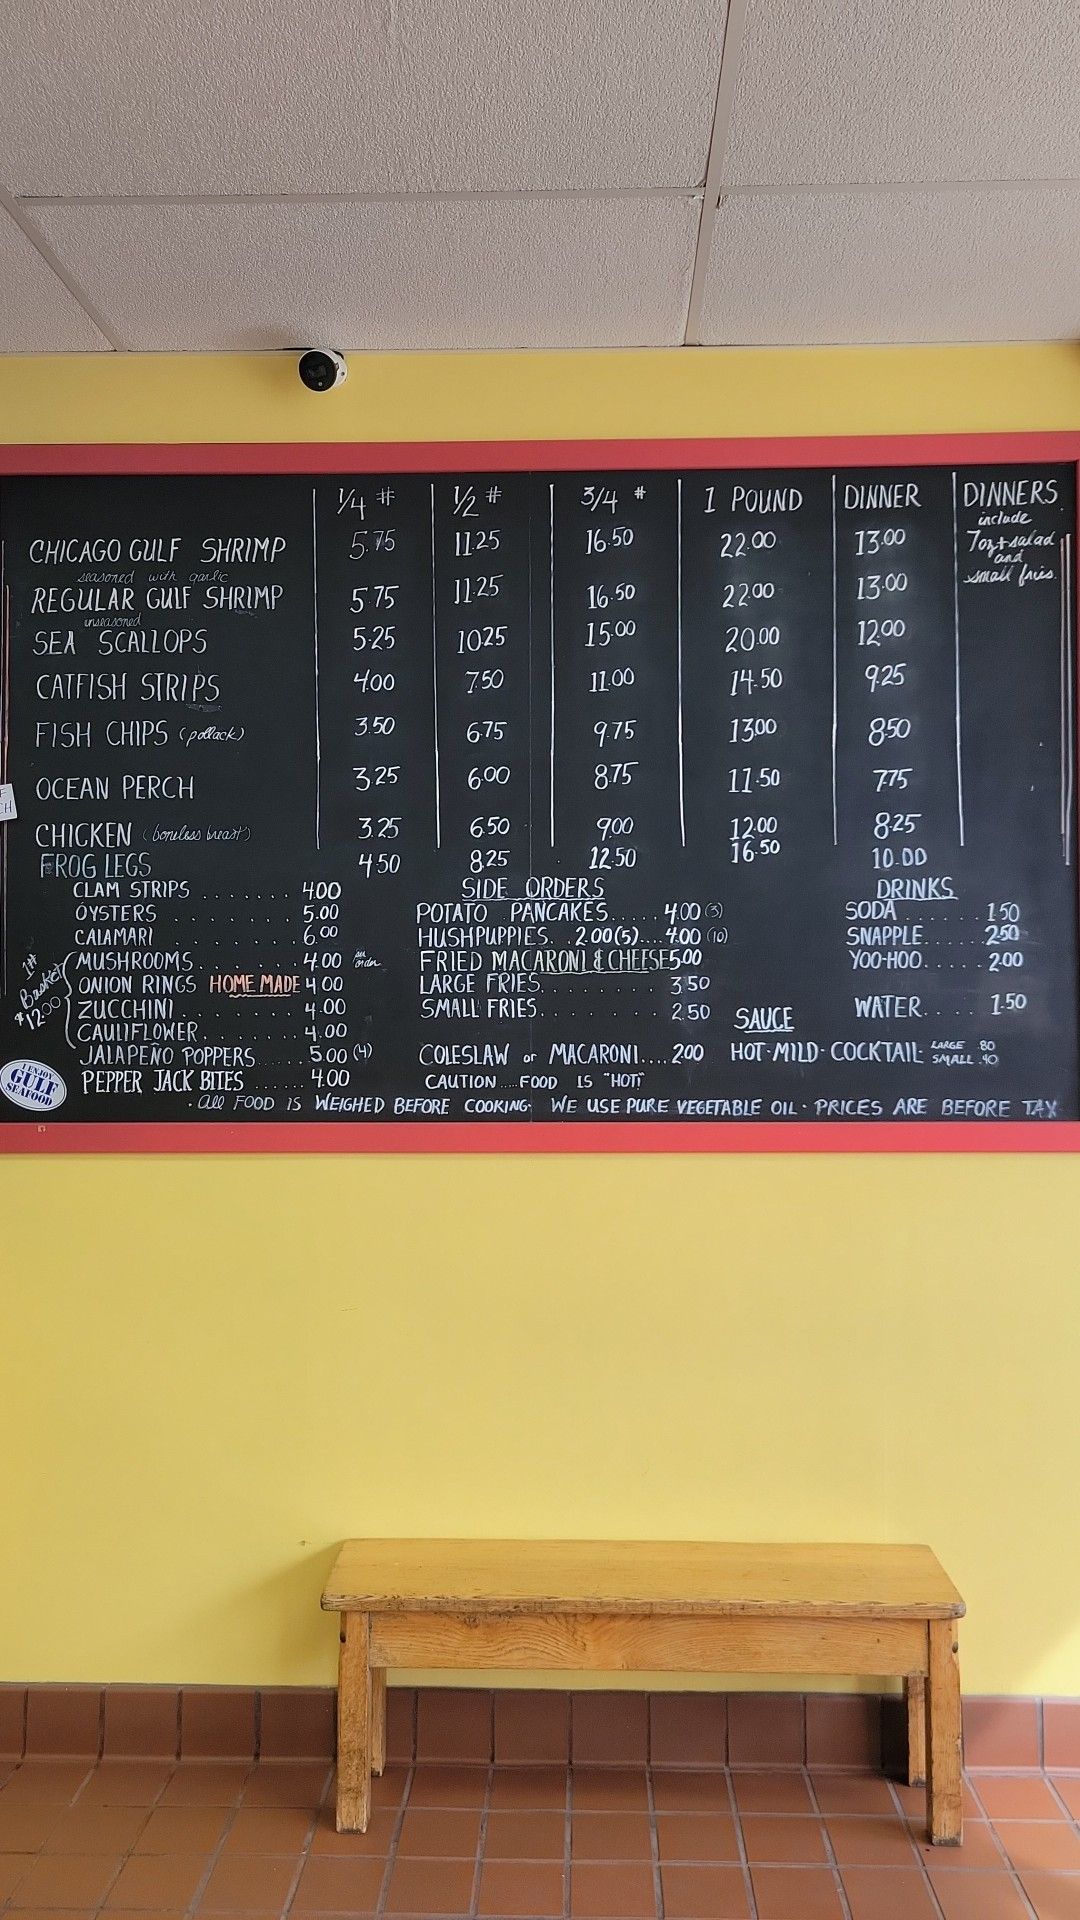 1/4 # 1/2 # 3/4 # 1 POUND DINNER DINNERS
include
7oz + salad
and
small fries.
CHICAGO GULF SHRIMP 5.75 11.25 16.50 22.00 13.00
seasoned with garlic
REGULAR GULF SHRIMP 5.75 11.25 16.50 22.00 13.00
unseasoned
SEA SCALLOPS 5.25 10.25 15.00 20.00 12.00
CATFISH STRIPS 4.00 7.50 11.00 14.50 9.25
FISH CHIPS (pollack) 3.50 6.75 9.75 13.00 8.50
OCEAN PERCH 3.25 6.00 8.75 11.50 7.75
CHICKEN (boneless breast) 3.25 6.50 9.00 12.00 8.25
FROG LEGS 4.50 8.25 12.50 16.50 10.00
CLAM STRIPS ....... 4.00
OYSTERS ........ 5.00
CALAMARI ....... 6.00
MUSHROOMS....... 4.00 per order
ONION RINGS HOME MADE 4.00
ZUCCHINI......... 4.00
CAULIFLOWER....... 4.00
1# Basket
$12.00
JALAPEÑO POPPERS..... 5.00 (4)
PEPPER JACK BITES ...... 4.00
SIDE ORDERS
POTATO PANCAKES..... 4.00 (3)
HUSHPUPPIES.. 2.00 (5).... 4.00 (10)
FRIED MACARONI & CHEESE 5.00
LARGE FRIES......... 3.50
SMALL FRIES......... 2.50
COLESLAW or MACARONI.... 2.00
CAUTION.....FOOD IS "HOT!"
DRINKS
SODA....... 1.50
SNAPPLE..... 2.50
YOO-HOO..... 2.00
WATER..... 1.50
SAUCE
HOT·MILD·COCKTAIL· LARGE .80
SMALL .40
I ENJOY
GULF
SEAFOOD
· All FOOD IS WEIGHED BEFORE COOKING· WE USE PURE VEGETABLE OIL · PRICES ARE BEFORE TAX